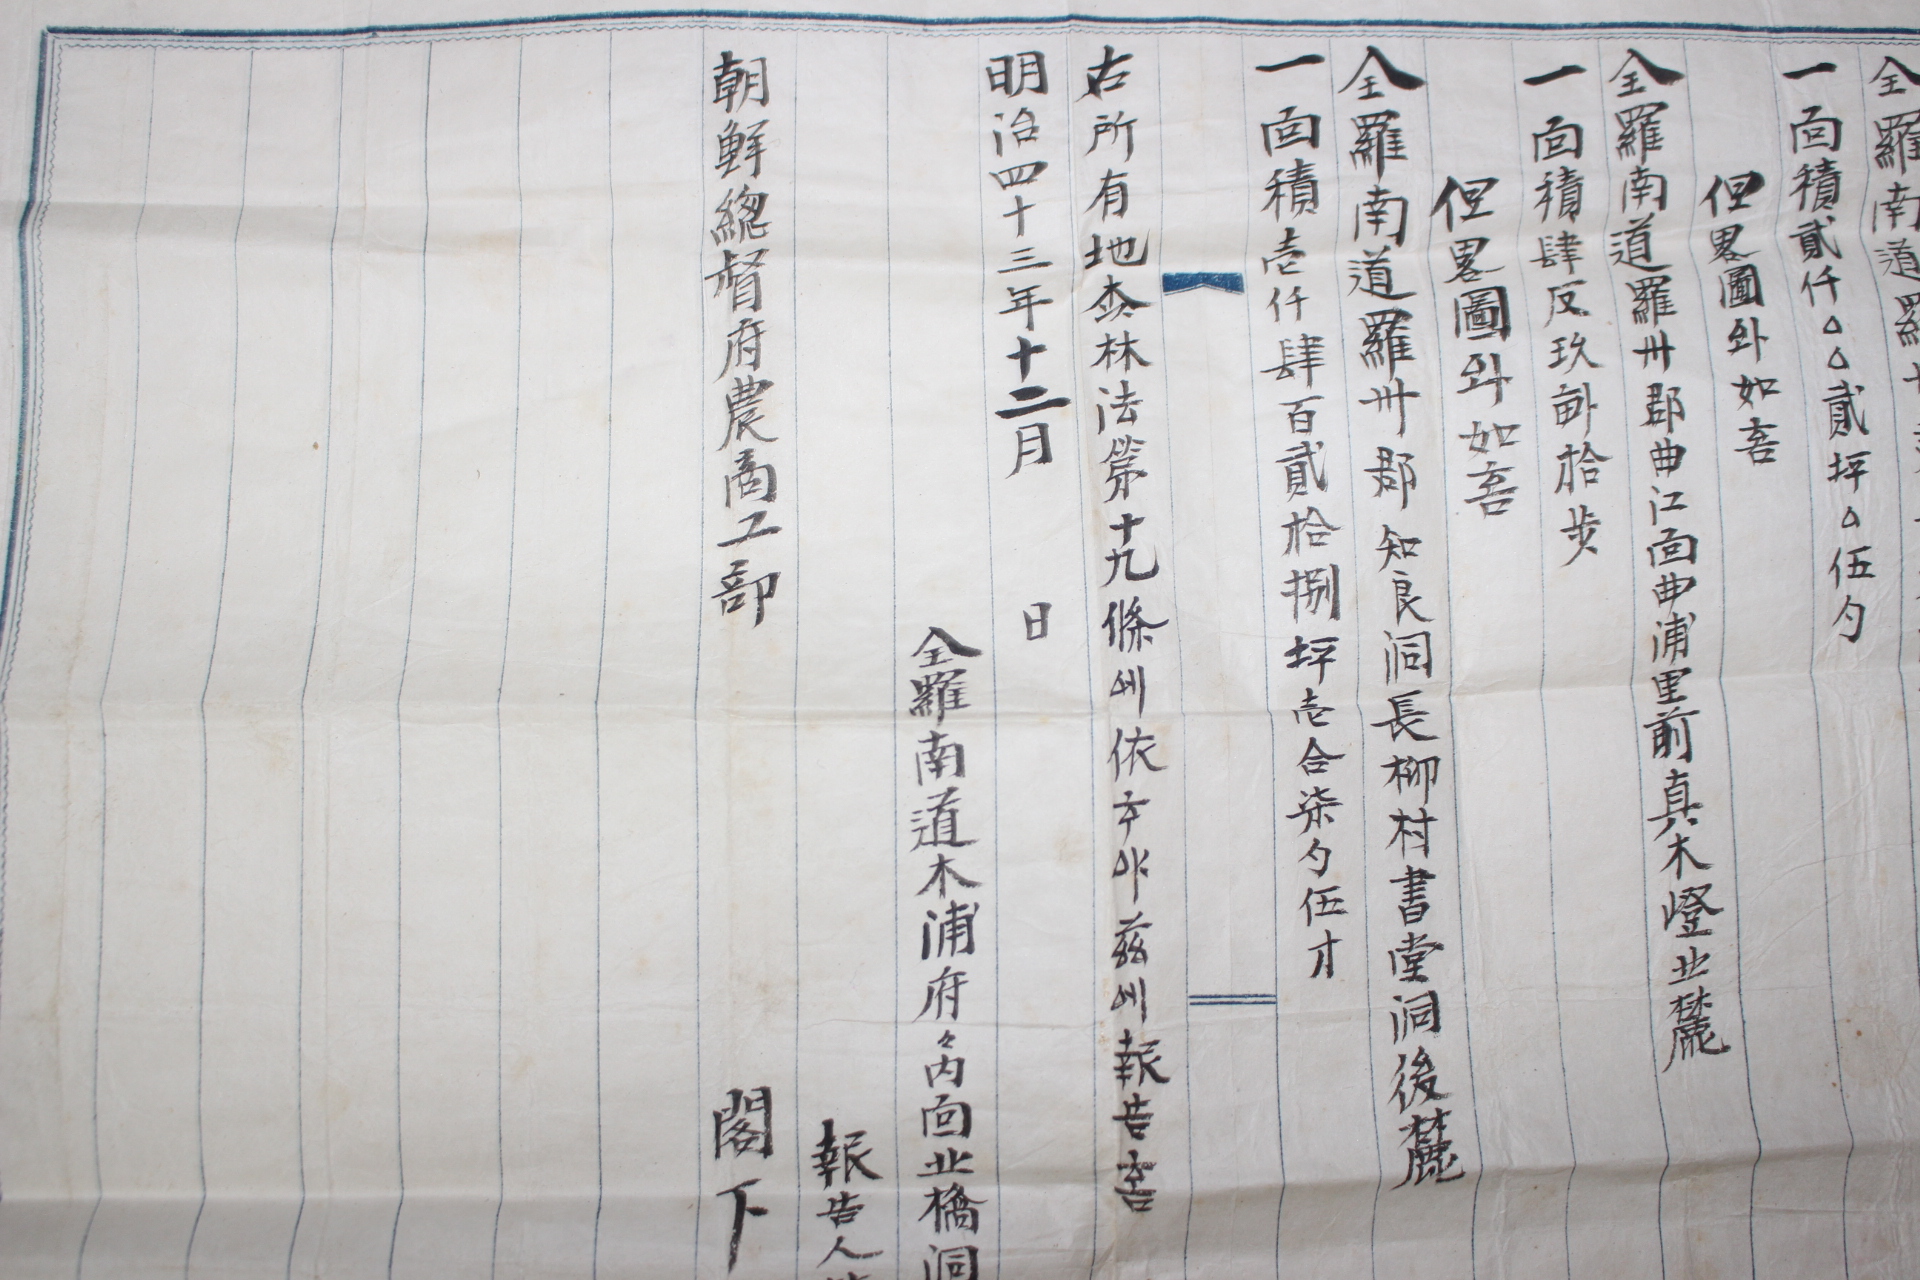 全羅南道羅
一 面積貳仟△△貳坪△伍勺
但畧圖와如홈
全羅南道羅州郡曲江面曲浦里前真木嶝北麓
一 面積肆反玖畝拾步
但畧圖와如홈
全羅南道羅州郡知良洞長柳村書堂洞後麓
一 面積壱仟肆百貳拾捌坪壱合柒勺伍才
右所有地森林法第十九條에依하야玆에報告홈
明治四十三年十二月 日
全羅南道木浦府々內面北橋洞
報告人
朝鮮總督府農商工部 閣下